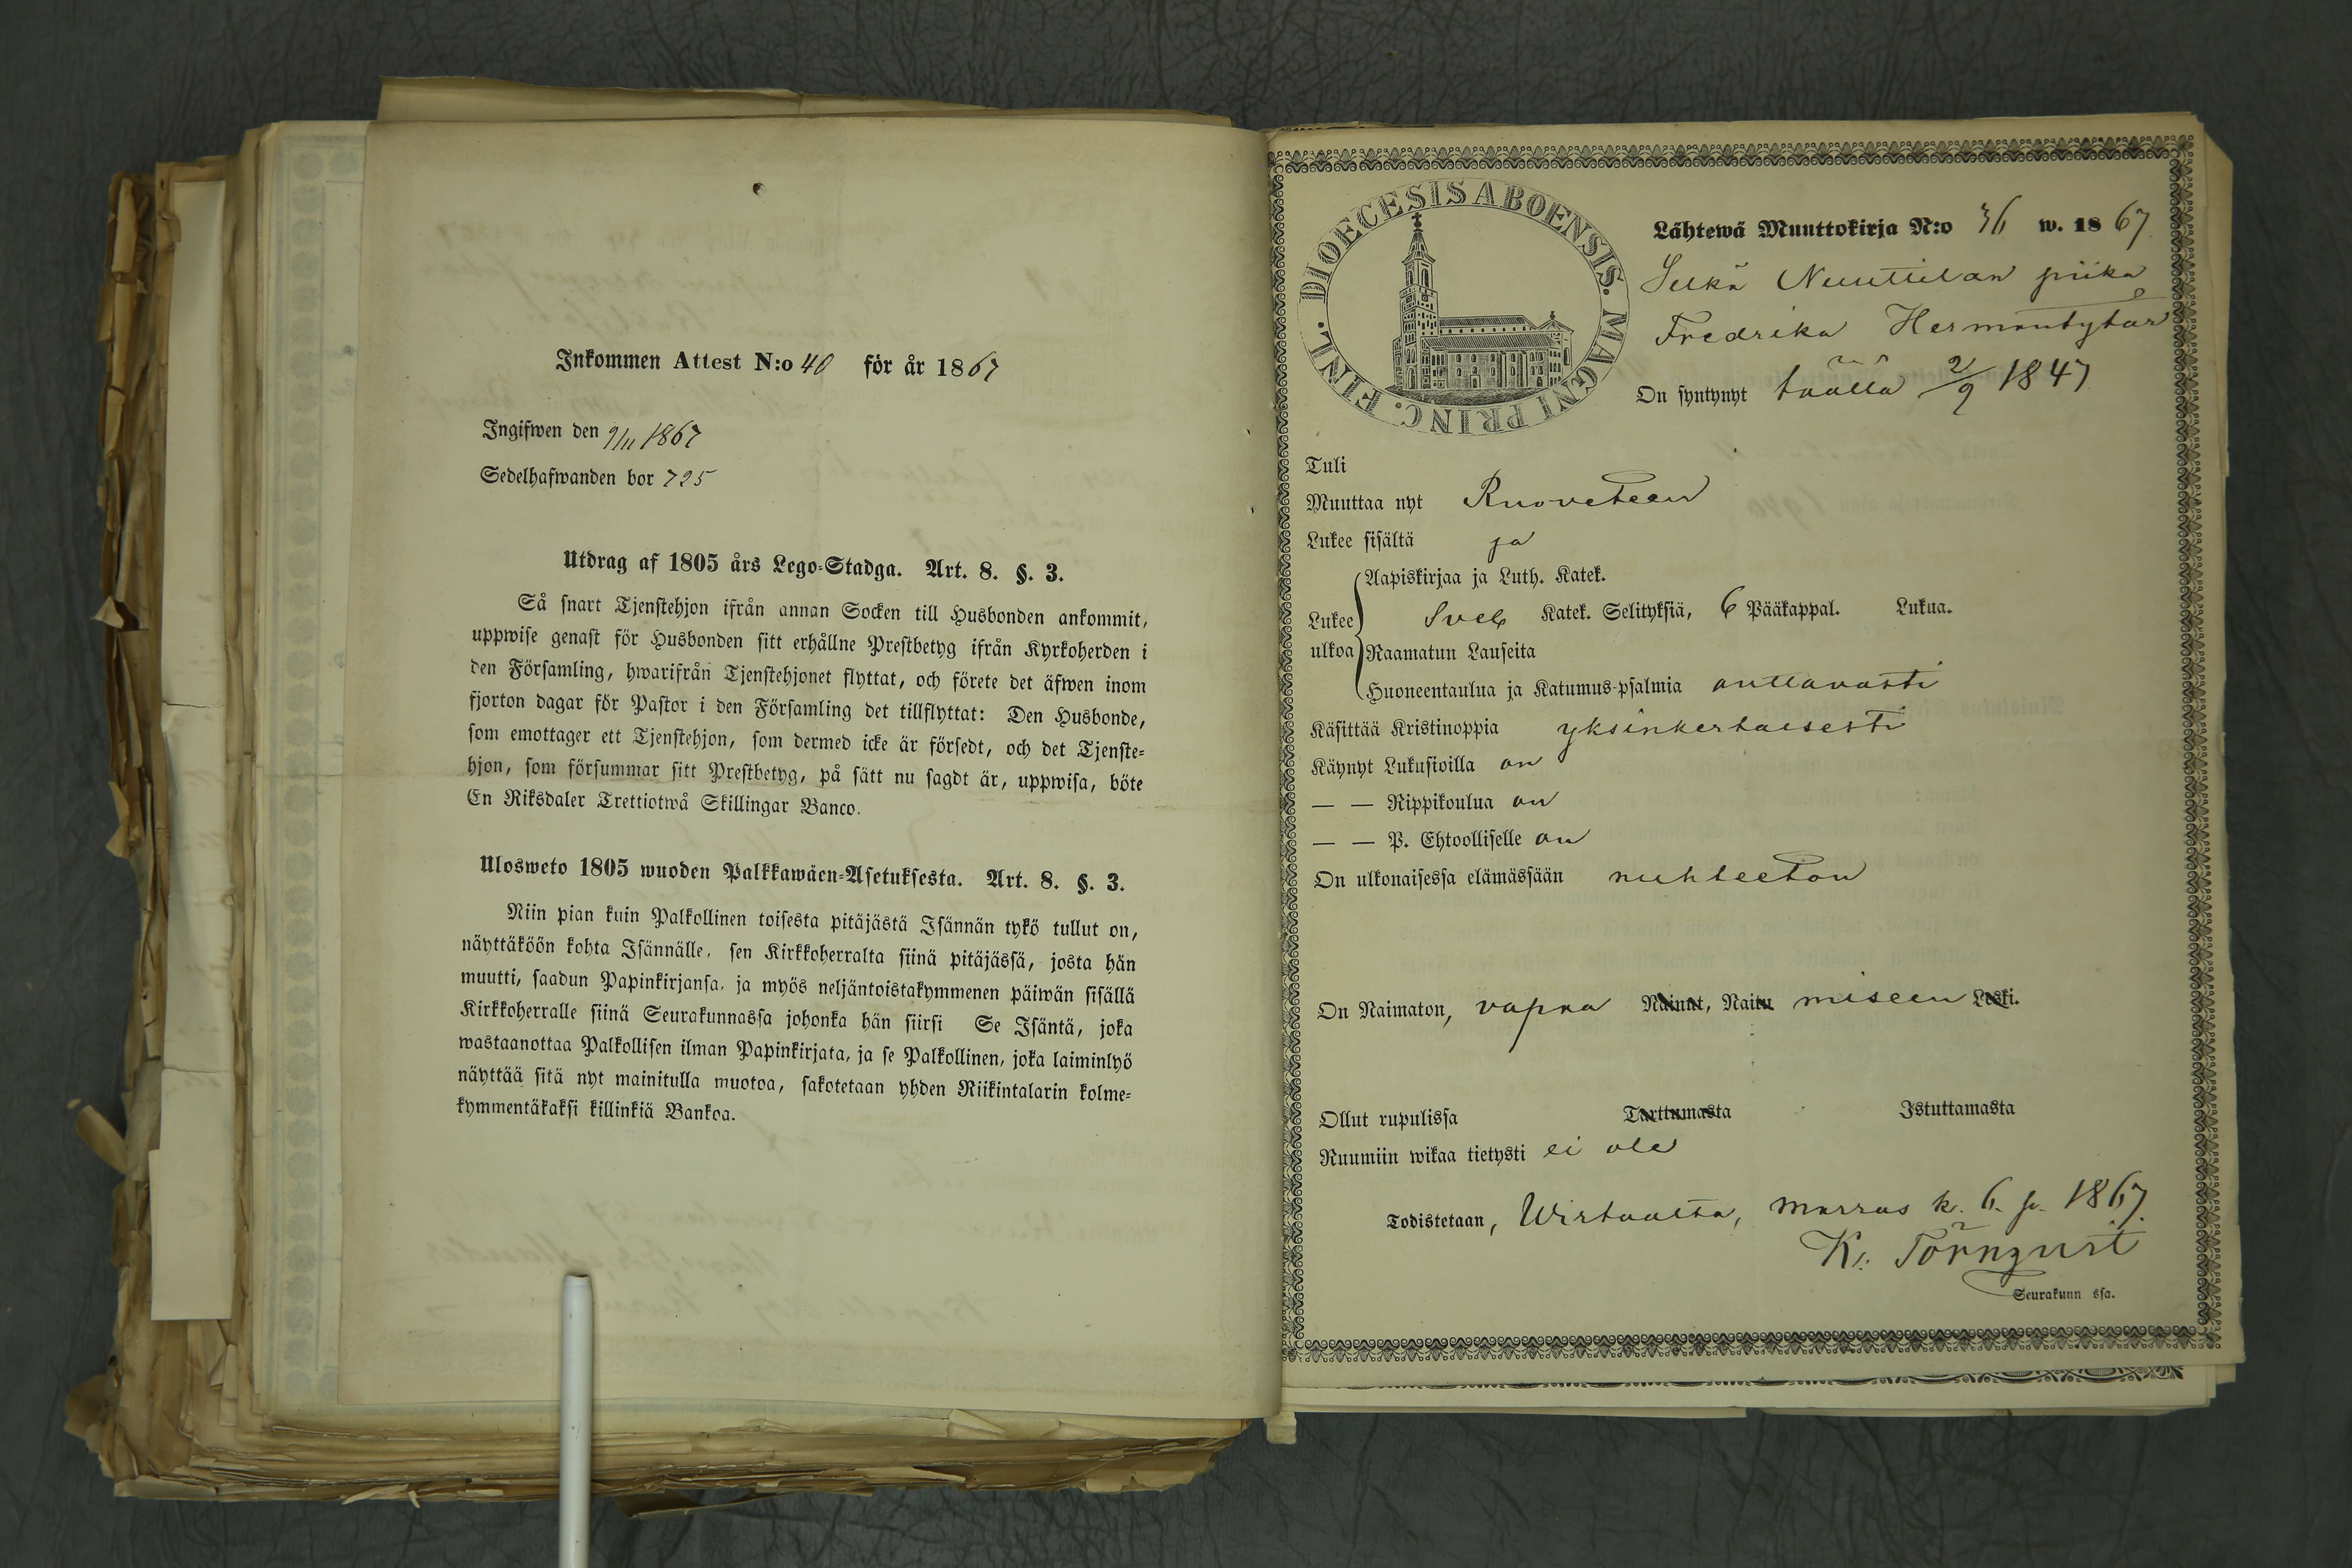 Inkommen Attest N:o 40 för år 1867
Ingifwen den 9/11 1867
Sedelhafwanden bor 725
Utdrag af 1805 års Lego-Stadga. Art. 8. §. 3.
Så snart Tjenstehjon ifrån annan Socken till Husbonden ankommit,
uppwise genast för Husbonden sitt erhållne Prestbetyg ifrån Kyrkoherden i
den Församling, hwarifrån Tjenstehjonet flyttat, och förete det äfwen inom
fjorton dagar för Pastor i den Församling det tillflyttat: Den Husbonde,
som emottager ett Tjenstehjon, som dermed icke är försedt, och det Tjenste-
hjon, som försummar sitt Prestbetyg, på sätt nu sagdt är, uppwisa, böte
En Riksdaler Trettiotwå Skillingar Banco.
Ulosweto 1805 wuoden Palkkawäen-Asetuksesta. Art. 8. §. 3.
Niin pian kuin Palkollinen toisesta pitäjästä Isännän tykö tullut on,
näyttäköön kohta Isännälle, sen Kirkkoherralta siinä pitäjässä, josta hän
muutti, saadun Papinkirjansa, ja myös neljäntoistakymmenen päiwän sisällä
Kirkkoherralle siinä Seurakunnassa johonka hän siirsi Se Isäntä, joka
wastaanottaa Palkollisen ilman Papinkirjata, ja se Palkollinen, joka laiminlyö
näyttää sitä nyt mainitulla muotoa, sakotetaan yhden Riikintalarin kolme-
kymmentäkaksi killinkiä Bankoa.
DIOECESIS ABOENSIS. MAGNI PRINC. FINL.
Lähtewä Muuttokirja N:o 36 w. 1867
Nuuttilan piika
Fredrika Hermantytär
On syntynyt täällä 2/9 1847
Tuli
Muuttaa nyt Ruoveteen
Lukee sisältä ja
Aapiskirjaa ja Luth. Katek.
Lukee Sveb Katek. Selityksiä, 6 Pääkappal. Lukua.
ulkoa Raamatun Lauseita
Huoneentaulua ja Katumus-psalmia auttavasti
Käsittää Kristinoppia yksinkertaisesti
Käynyt Lukusioilla on
— — Rippikoulua on
— — P. Ehtoolliselle on
On ulkonaisessa elämässään nuhteeton
On Naimaton, vapaa Nainut, Naitu miseen Leski.
Ollut rupulissa Tarttumasta Istuttamasta
Ruumiin wikaa tietysti ei ole
Todistetaan, Wirtaalta, marras k. 6. p. 1867.
K. Törnqvist
Seurakunn ssa.